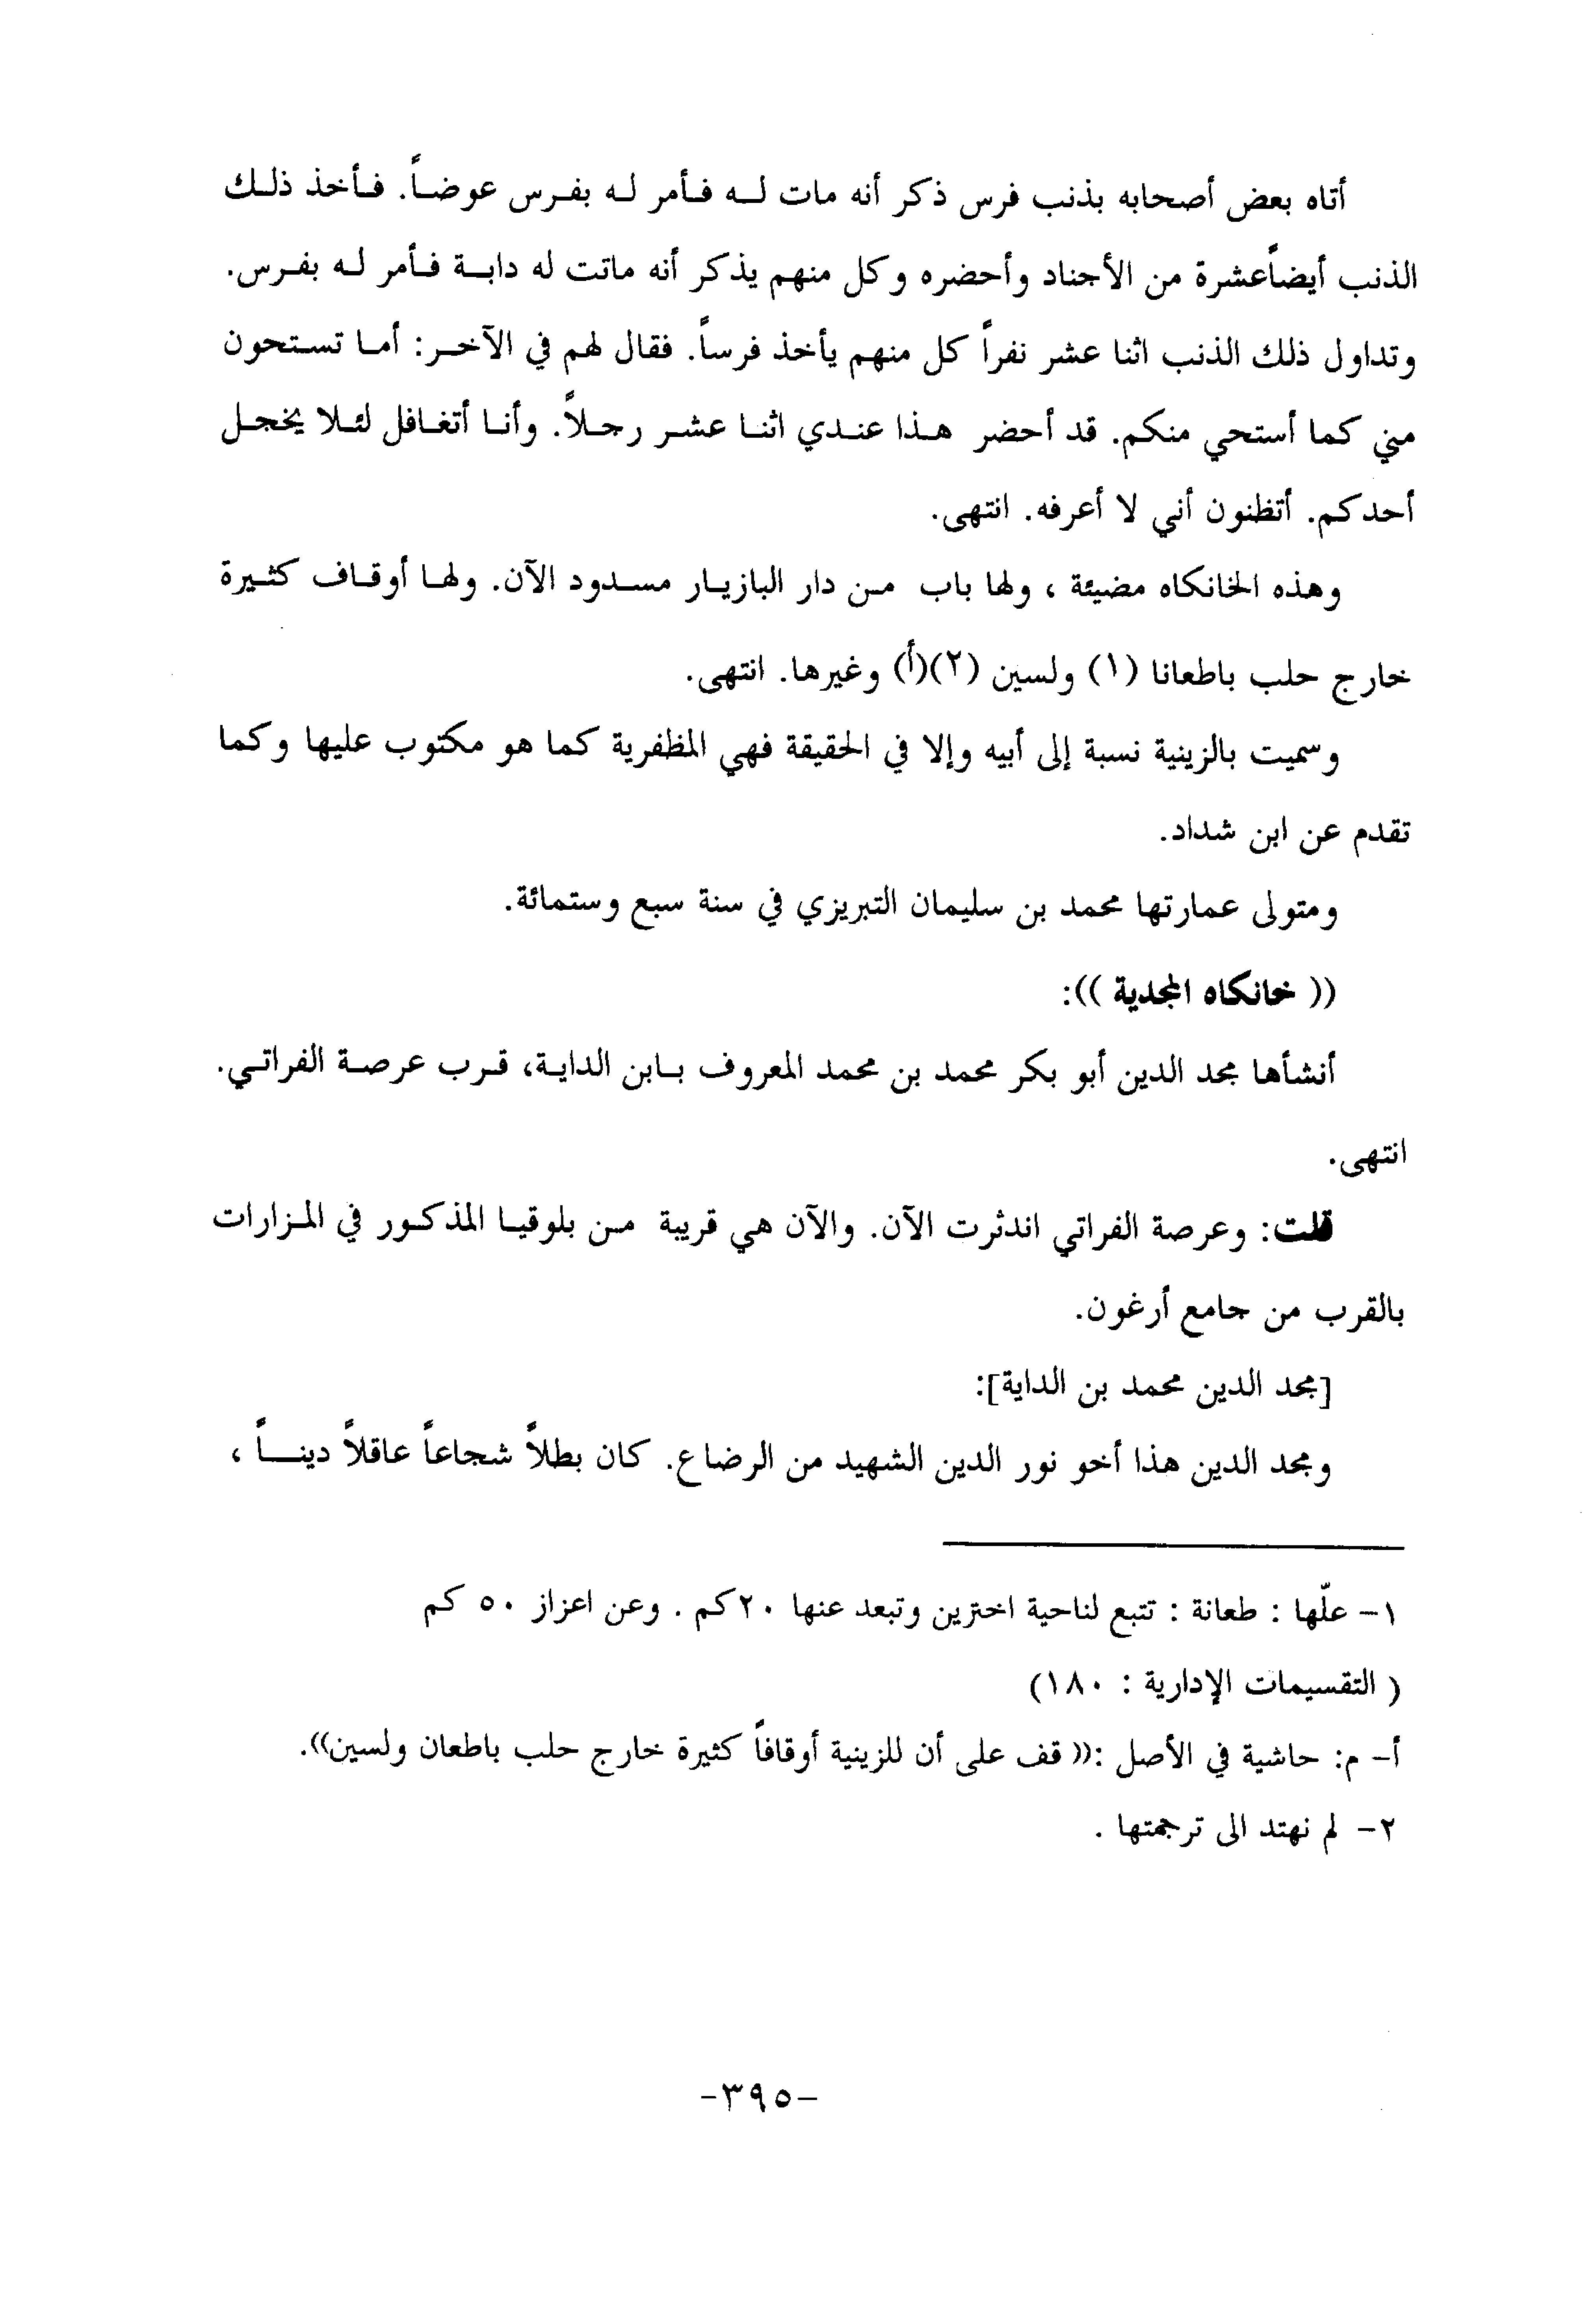 أتاه بعض أصحابه بذنب فرس ذكر أنه مات له فأمر له بفرس عوضاً. فأخذ ذلك
الذنب أيضاًعشرة من الأجناد وأحضره وكل منهم يذكر أنه ماتت له دابة فأمر له بفرس.
وتداول ذلك الذنب اثنا عشر نفراً كل منهم يأخذ فرساً. فقال لهم في الآخر: أما تستحون
مني كما أستحي منكم. قد أحضر هذا عندي اثنا عشر رجلاً. وأنا أتغافل لئلا يخجل
أحدكم. أتظنون أني لا أعرفه. انتهى.
وهذه الخانكاه مضيئة ، ولها باب من دار البازيار مسدود الآن. ولها أوقاف كثيرة
خارج حلب باطعانا (١) ولسين (٢)(أ) وغيرها. انتهى.
وسميت بالزينية نسبة إلى أبيه وإلا في الحقيقة فهي المظفرية كما هو مكتوب عليها وكما
تقدم عن ابن شداد.
ومتولى عمارتها محمد بن سليمان التبريزي في سنة سبع وستمائة.
(( خانكاه المجدية )):
أنشأها مجد الدين أبو بكر محمد بن محمد المعروف بابن الداية، قرب عرصة الفراتي.
انتهى.
قلت: وعرصة الفراتي اندثرت الآن. والآن هي قريبة من بلوقيا المذكور في المزارات
بالقرب من جامع أرغون.
[مجد الدين محمد بن الداية]:
ومجد الدين هذا أخو نور الدين الشهيد من الرضاع. كان بطلاً شجاعاً عاقلاً ديناً ،
١- علّها : طعانة : تتبع لناحية اخترين وتبعد عنها ٢٠كم . وعن اعزاز ٥٠ كم
( التقسيمات الإدارية : ١٨٠)
أ- م: حاشية في الأصل :(( قف على أن للزينية أوقافاً كثيرة خارج حلب باطعان ولسين)).
٢- لم نهتد الى ترجمتها .
-٣٩٥-